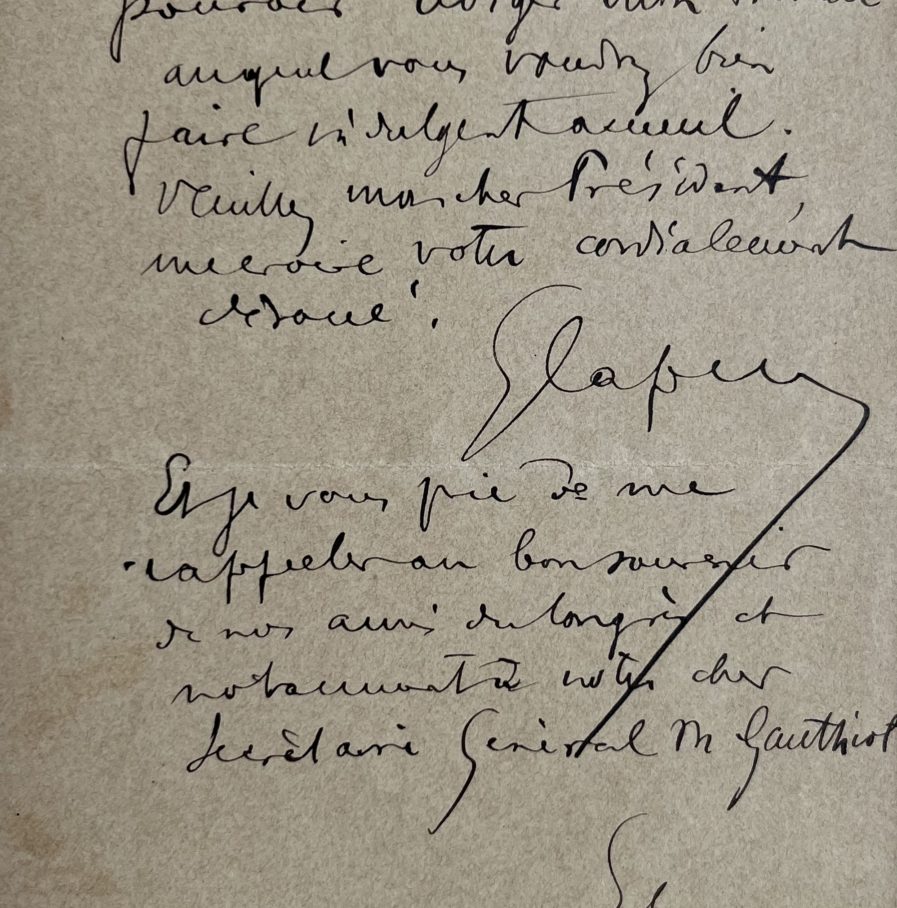 pouvoir
auquel vous voudrez bien
faire indulgent accueil.
Veuillez mon cher Président,
me croire votre cordialement
dévoué.
Et je vous prie de me
rappeler au bon souvenir
de nos amis du Congrès et
notamment à notre cher
Secrétaire Général M Gauthiot